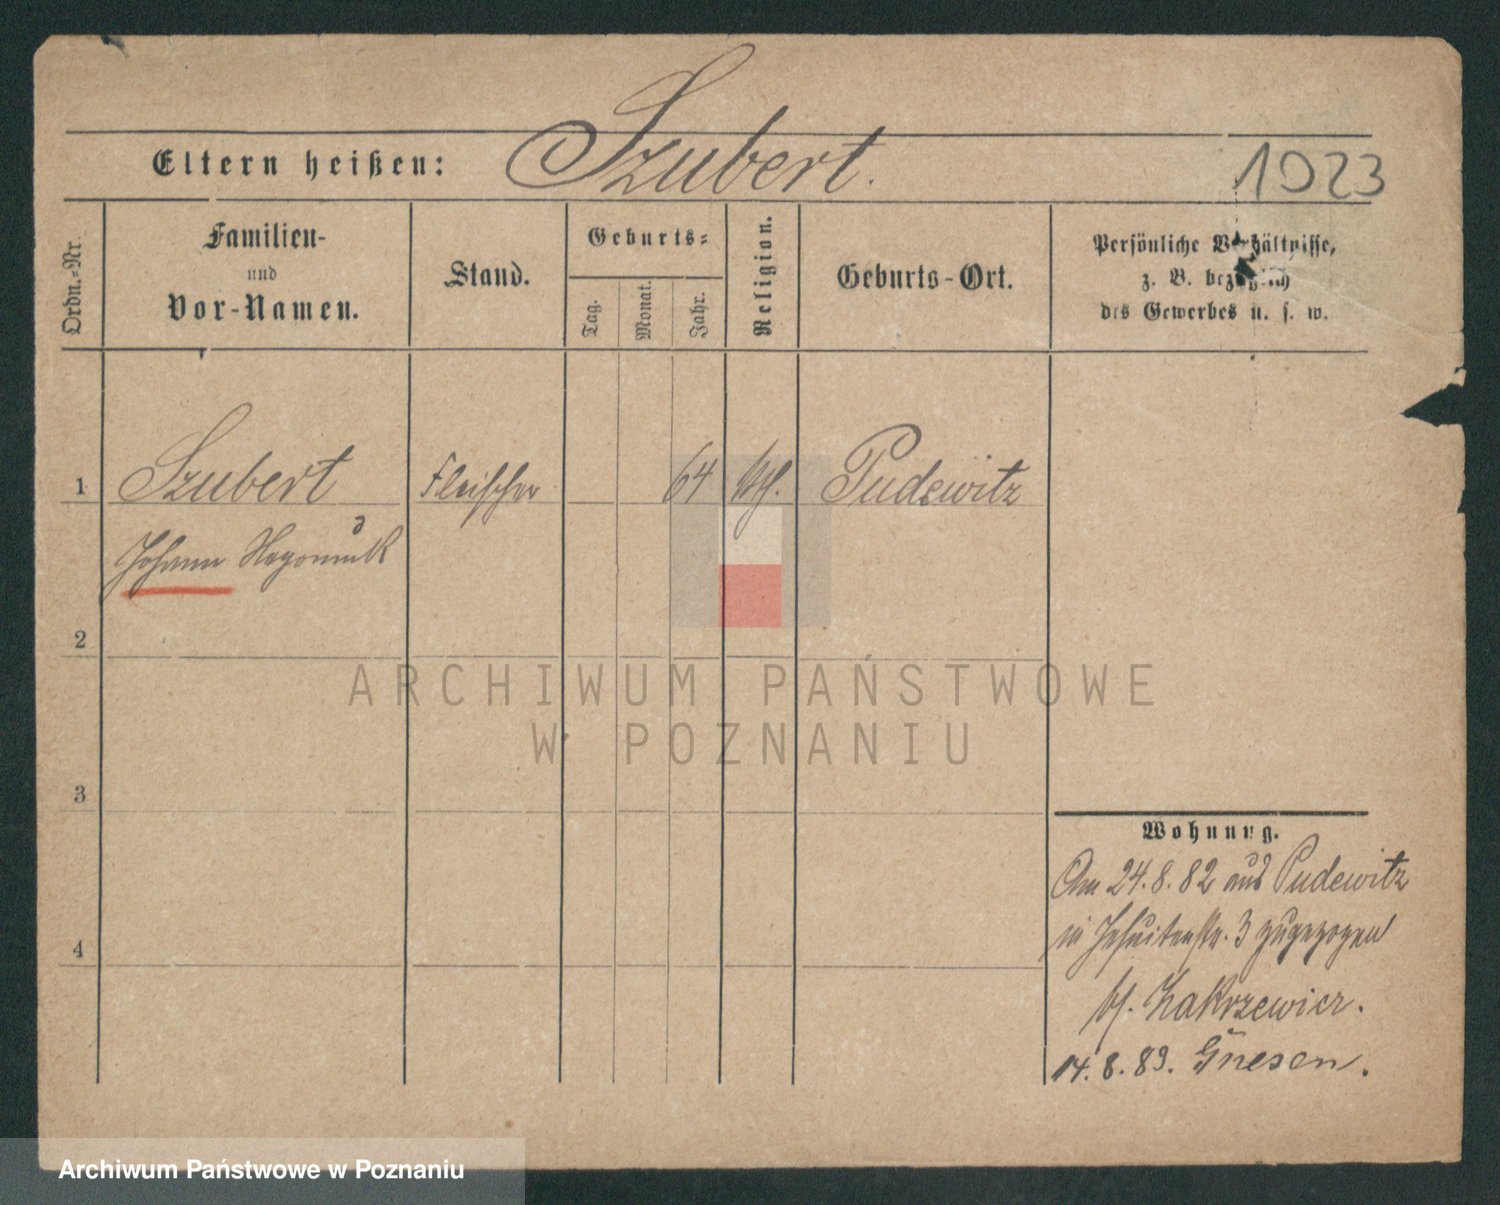 Szubert.
Eltern heißen:
1023
Ordn.-Nr.
Familien-
und
Vor-Namen.
Stand.
Geburts-
Tag.
Monat.
Jahr.
Religion.
Geburts-Ort.
Persönliche Verhältnisse,
z. B. bezüglich
des Gewerbes u. s. w.
1 Szubert Fleischer 64 kth. Pudewitz
Johann
2
3
4
Wohnung.
Am 24.8.82 aus Pudewitz
in Jesuitenstr. 3 zugezogen
bh. Zakrzewicz.
14.8.83. Gnesen.
ARCHIWUM PAŃSTWOWE
W POZNANIU
Archiwum Państwowe w Poznaniu